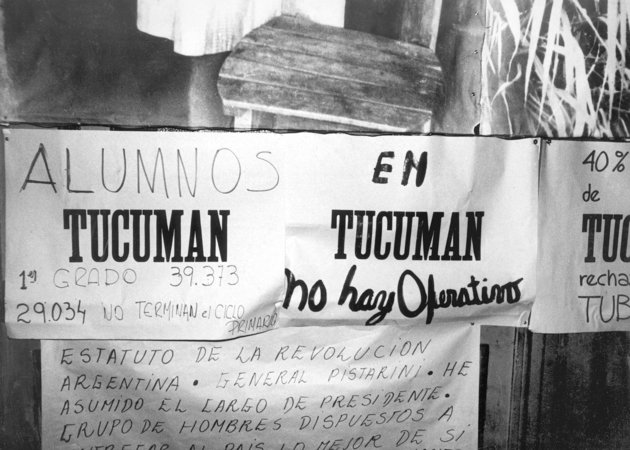 ALUMNOS
TUCUMAN
1er GRADO 39.373
29.034 NO TERMINAN el CICLO
PRIMARIO
EN
TUCUMAN
no hay Operativo
40%
de
TUC
recha
TUB
ESTATUTO DE LA REVOLUCION
ARGENTINA • GENERAL PISTARINI • HE
ASUMIDO EL CARGO DE PRESIDENTE.
GRUPO DE HOMBRES DISPUESTOS A
AL PAÍS LO MEJOR DE SÍ